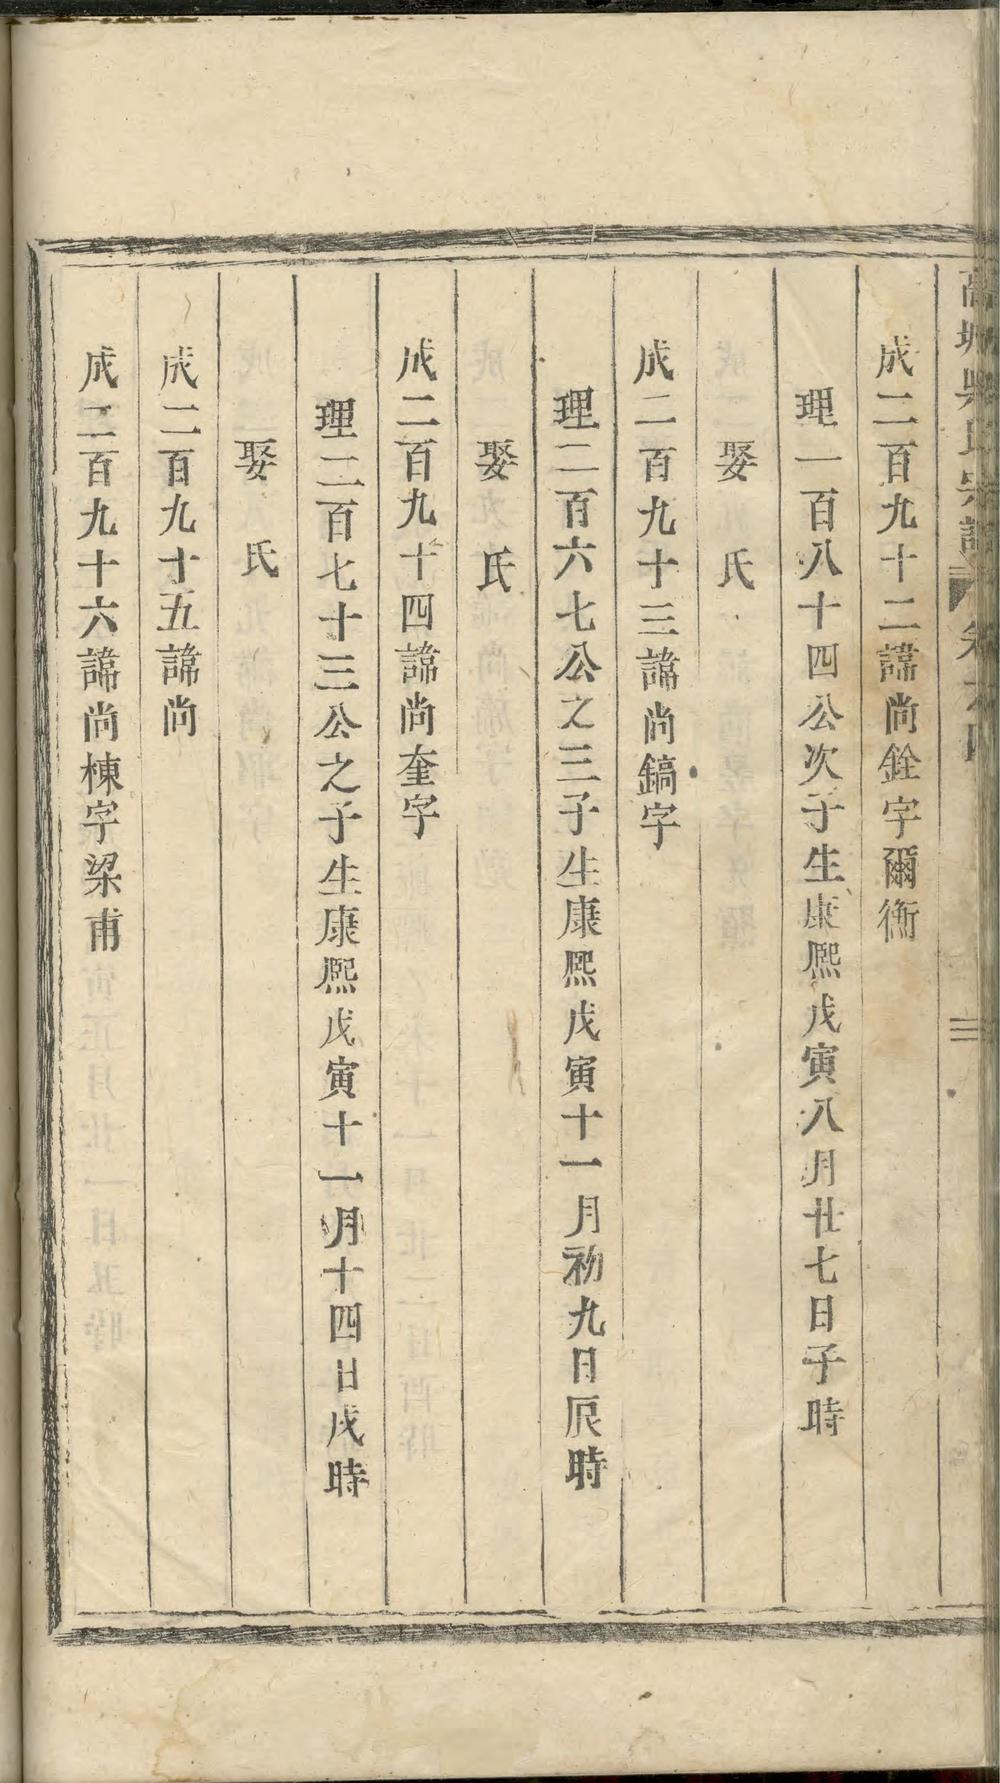 成二百九十二諱尚銓字爾衡
理一百八十四公次子生康熙戊寅八月廿七日子時
娶　氏
成二百九十三諱尚鎬字
理二百六七公之三子生康熙戊寅十一月初九日辰時
娶　氏
成二百九十四諱尚奎字
理二百七十三公之子生康熙戊寅十一月十四日戌時
娶　氏
成二百九十五諱尚
成二百九十六諱尚棟字梁甫